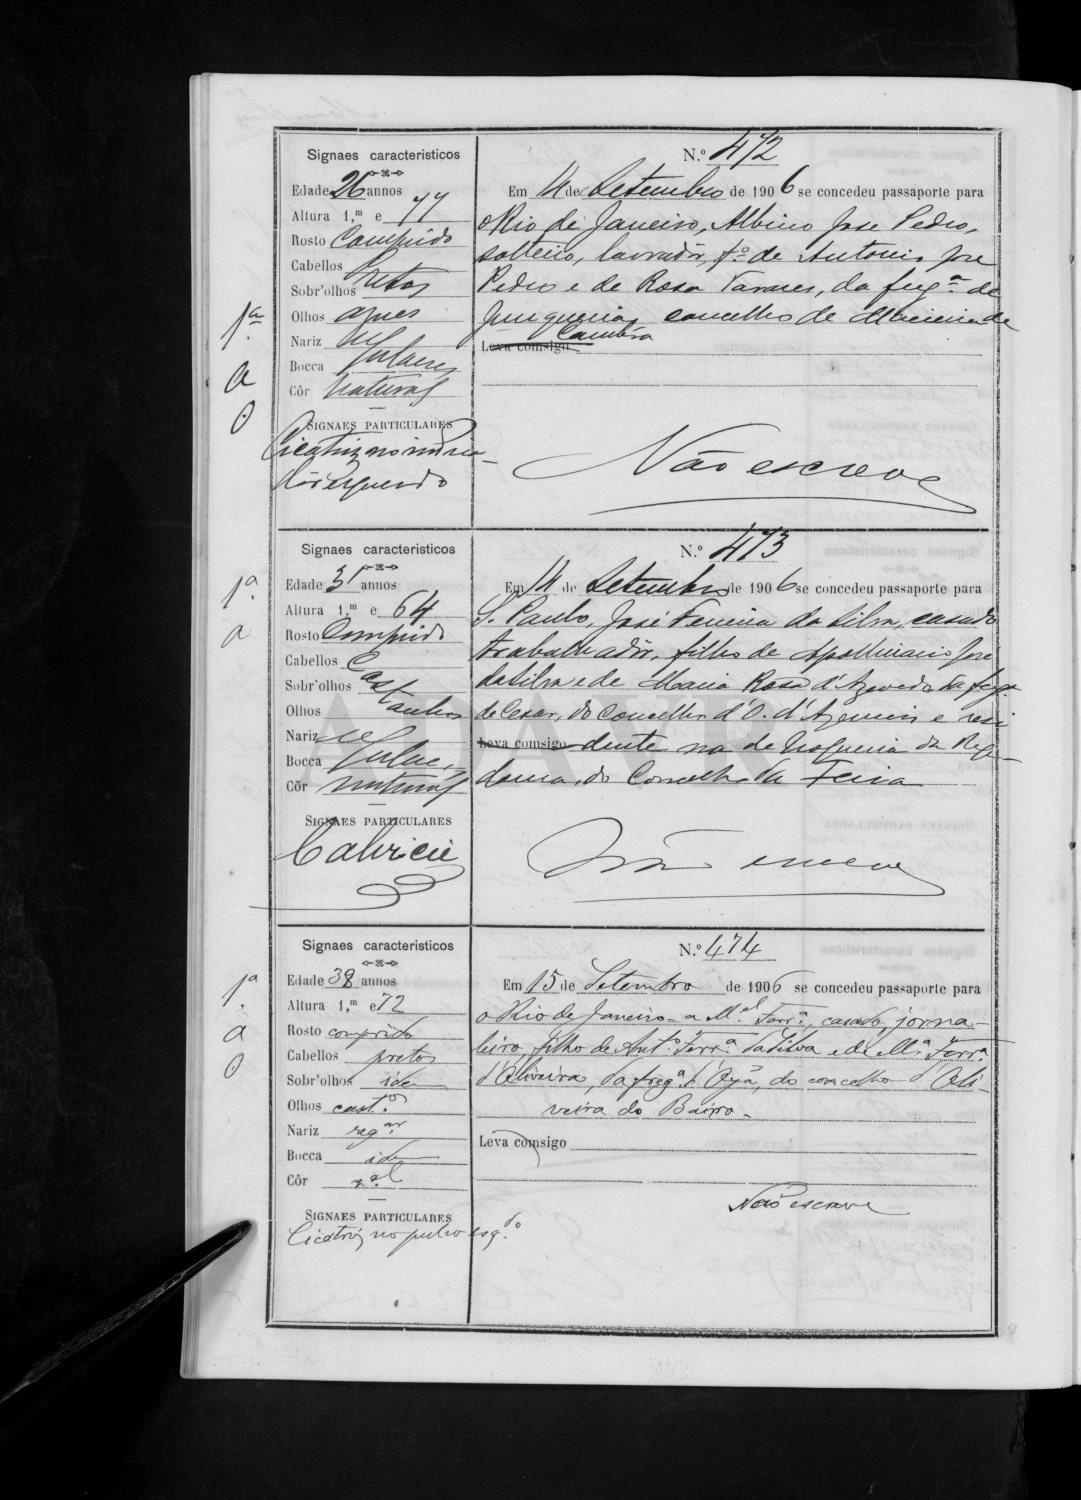 1.ª
a
O
Signaes caracteristicos
Edade 26 annos
Altura 1,m e 77
Rosto Comprido
Cabellos
Sobr'olhos Pretos
Olhos azues
Nariz
Bocca Regulares
Côr Natural
SIGNAES PARTICULARES
Cicatriz no
esquerdo
N.º 472
Em 14 de Setembro de 1906 se concedeu passaporte para
o Rio de Janeiro, Albino Jose Pedro,
solteiro, lavrador, fº de Antonio Jose
Pedro e de Rosa Tavares, da fregª de
Junqueira, concelho de Macieira de
Cambra
Leva comsigo
Não escreve
1.ª
a
Signaes caracteristicos
Edade 31 annos
Altura 1,m e 64
Rosto Comprido
Cabellos
Sobr'olhos Castanhos
Olhos
Nariz
Bocca Regulares
Côr natural
SIGNAES PARTICULARES
Calvicie
N.º 473
Em 14 de Setembro de 1906 se concedeu passaporte para
S. Paulo, José Ferreira da Silva, casado
trabalhador, filho de Apollinario Jose
da Silva e de Maria Rosa d'Azevedo da fregª
de Cesar, do Concelho d'O. d'Azemeis e resi
Leva comsigo dente na de Nogueira da Reg-
doura, do Concelho da Feira
Não escreve
1.ª
a
O
Signaes caracteristicos
Edade 38 annos
Altura 1,m e 72
Rosto comprido
Cabellos pretos
Sobr'olhos idem
Olhos cast.os
Nariz reg.ar
Bocca idem
Côr n.al
SIGNAES PARTICULARES
Cicatriz no pulso esq.do
N.º 474
Em 15 de Setembro de 1906 se concedeu passaporte para
o Rio de Janeiro a M.el Ferr.a, casado, jorna-
leiro, filho de Ant.º Ferr.a da Silva e de M.ª Ferr.a
d'Oliveira, da freg.ª d'Oyã, do concelho d'Oli-
veira do Bairro-
Leva comsigo
Não escreve
ADAVR